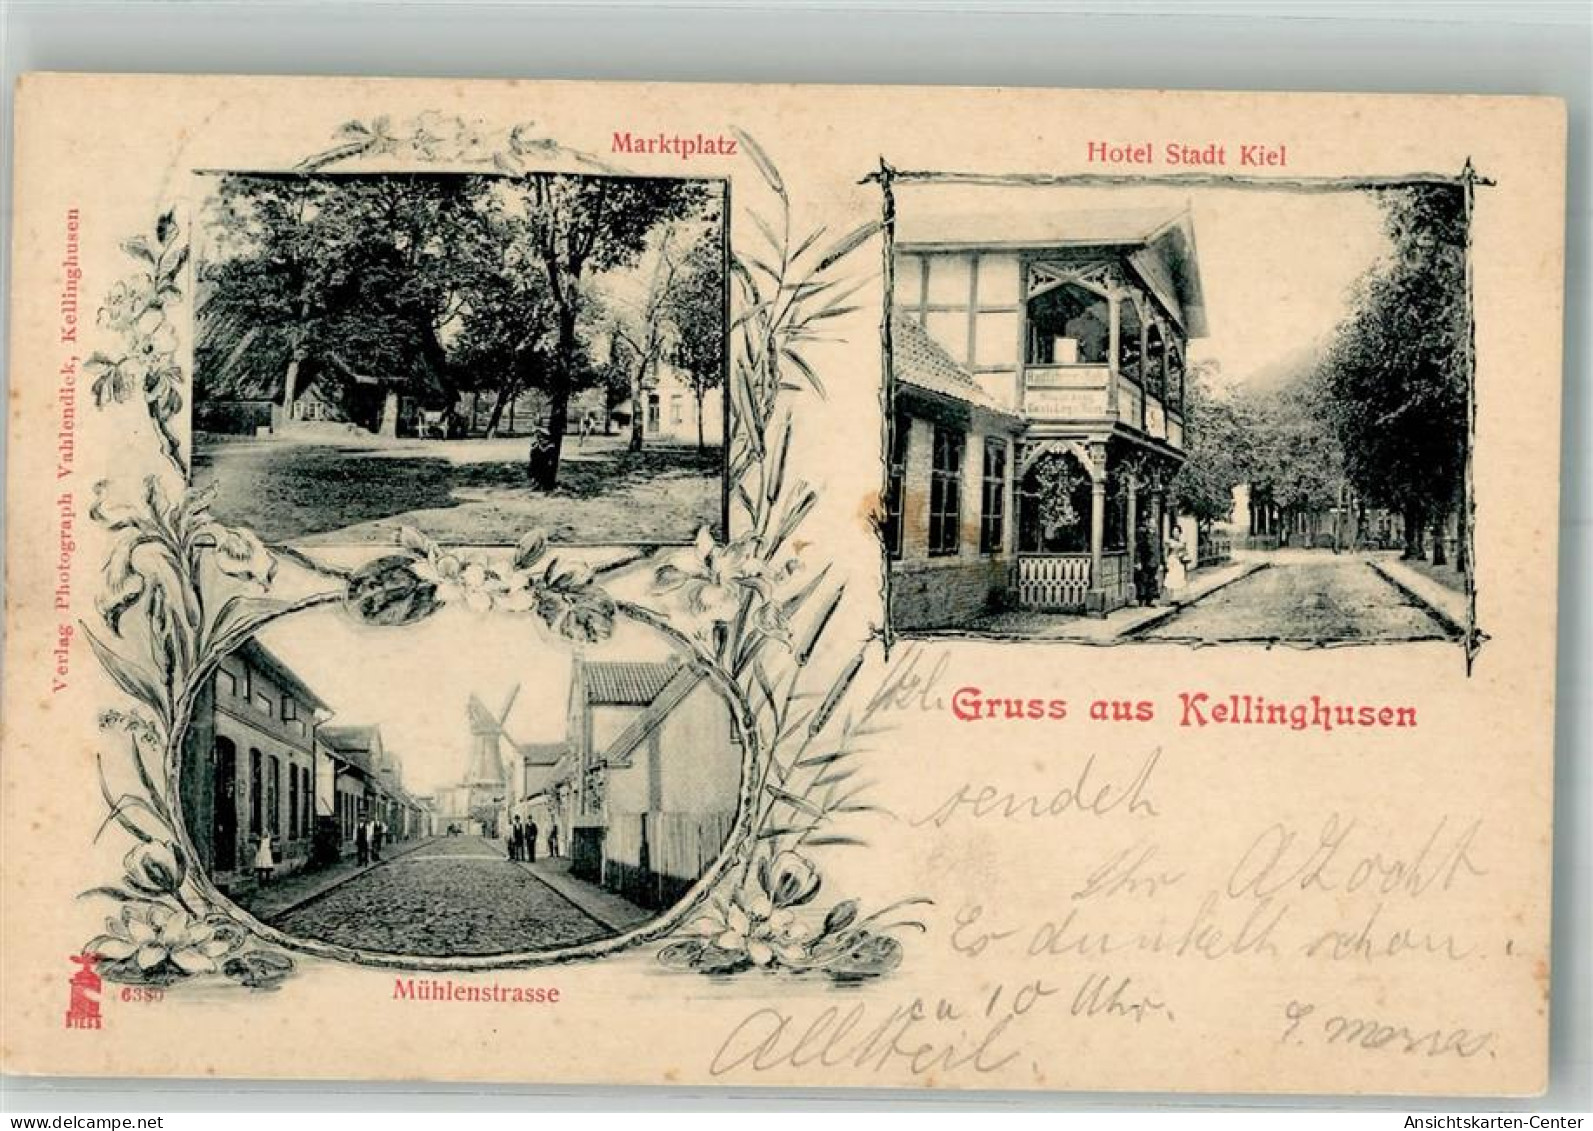 Marktplatz
Hotel Stadt Kiel
Verlag Photograph Vahlendick, Kellinghusen
Gruss aus Kellinghusen
sendet
Ihr
Es dunkelt schon.
ca 10 Uhr.
Mühlenstrasse
6380
Ansichtskarten-Center